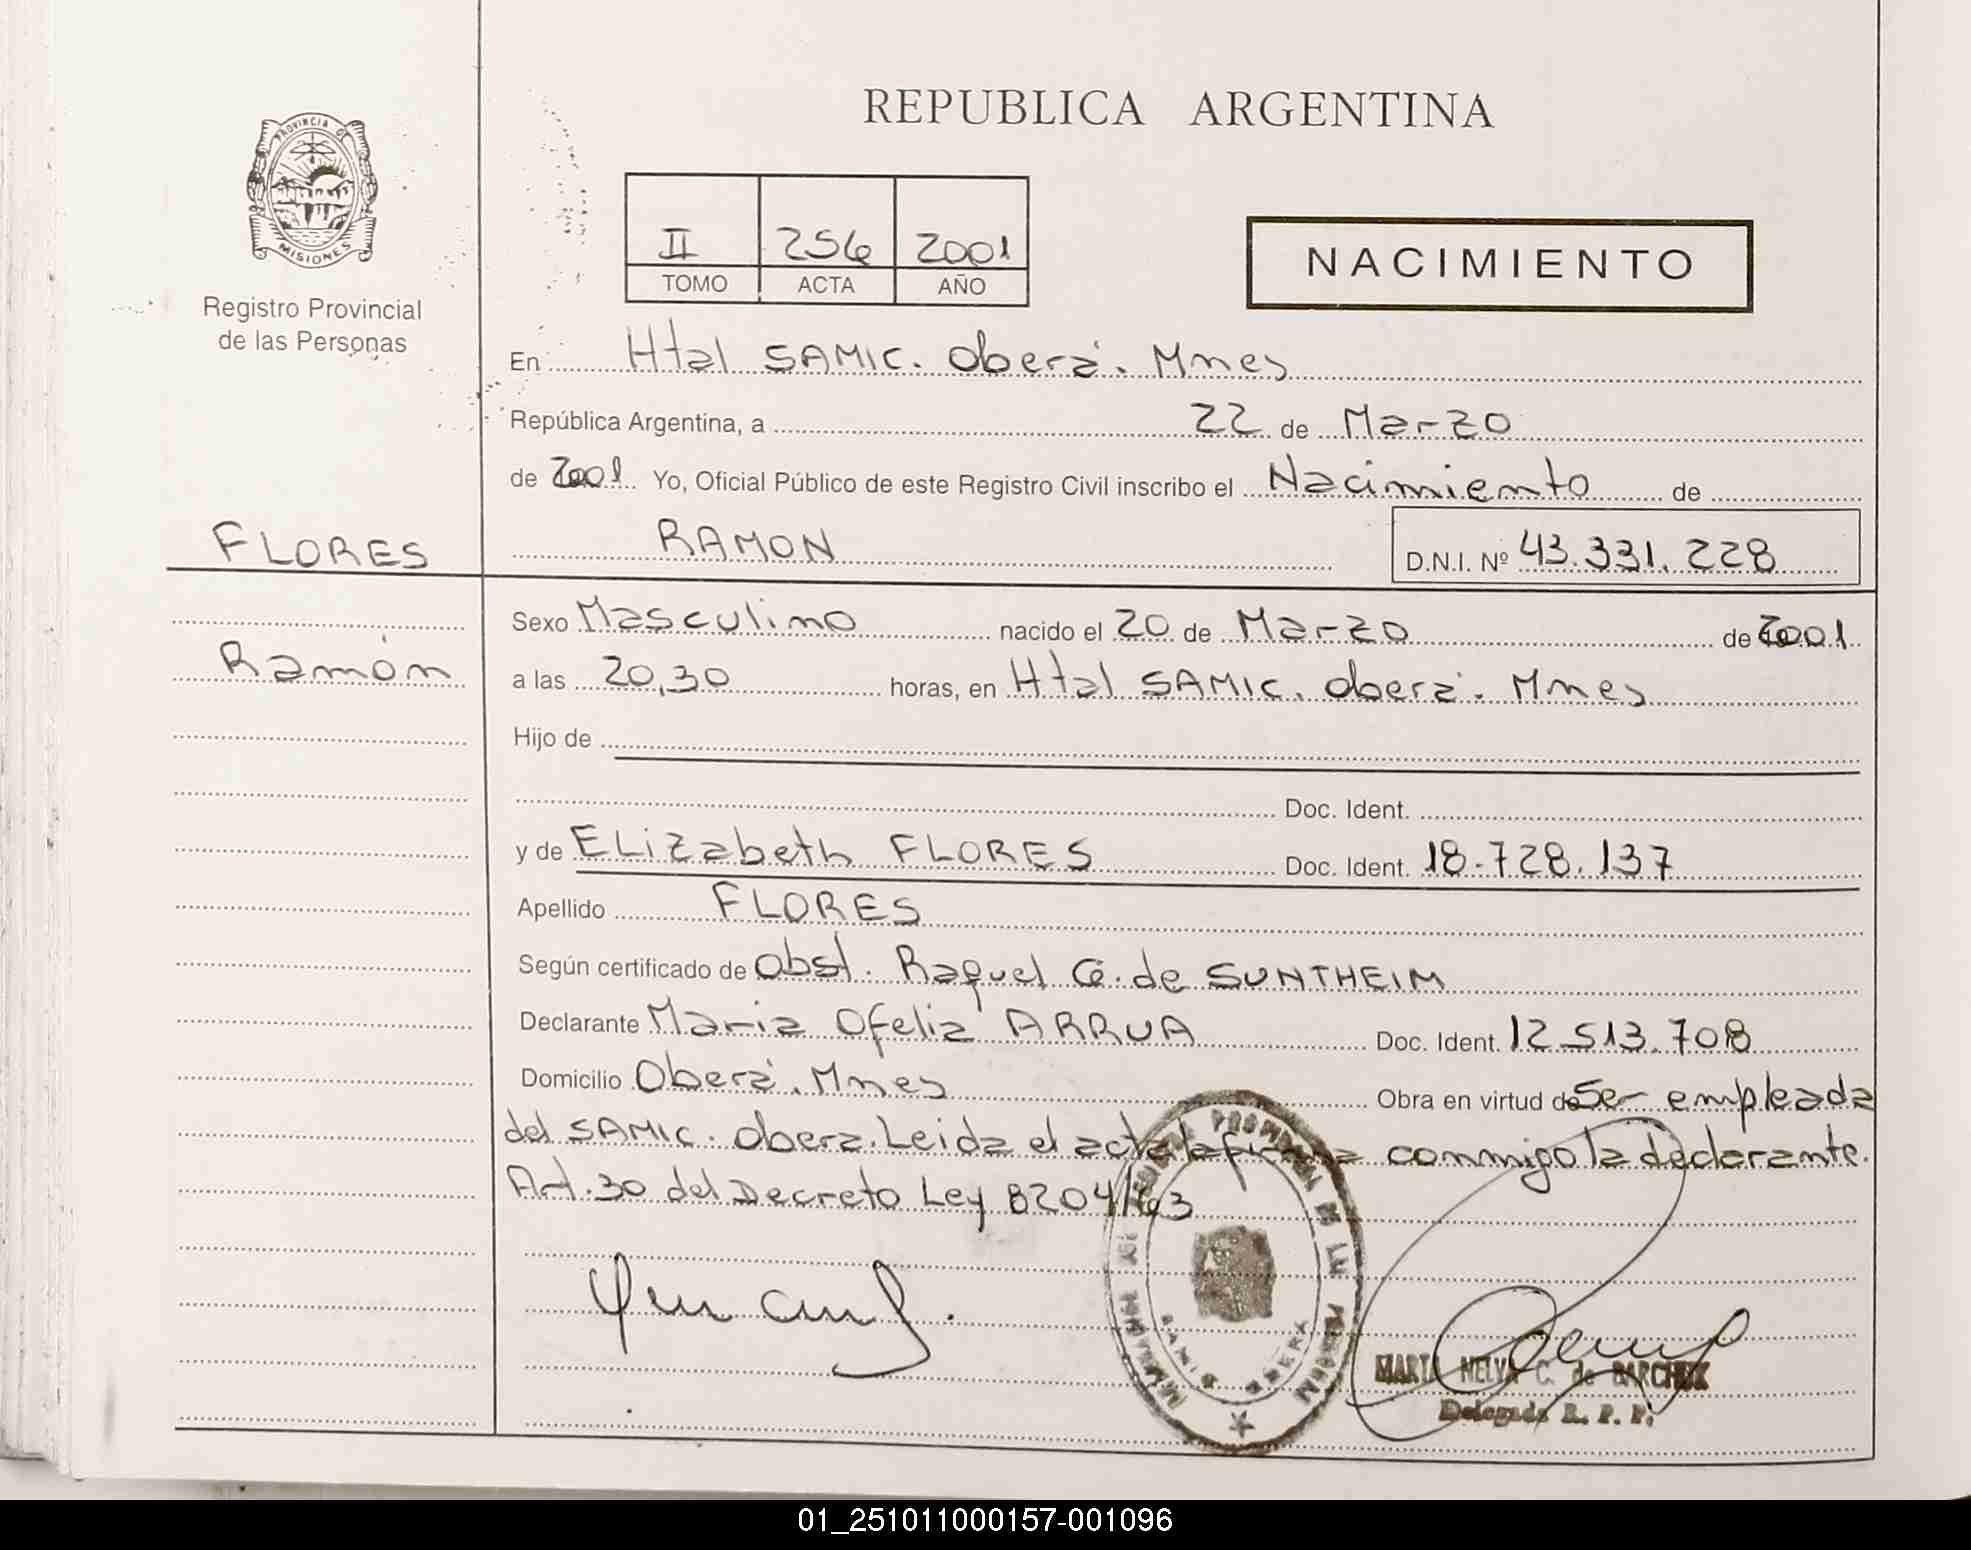 REPUBLICA ARGENTINA
PROVINCIA DE
MISIONES
Registro Provincial
de las Personas
II 256 2001
TOMO ACTA AÑO
NACIMIENTO
En Htal SAMIC. Oberá. Mnes
República Argentina, a 22 de Marzo
de 2001 Yo, Oficial Público de este Registro Civil inscribo el Nacimiento de
FLORES
RAMON D.N.I. Nº 43.331.228
Sexo Masculino nacido el 20 de Marzo de 2001
Ramón
a las 20,30 horas, en Htal SAMIC. Oberá. Mnes
Hijo de
Doc. Ident.
y de ELizabeth FLORES Doc. Ident. 18.728.137
Apellido FLORES
Según certificado de Obst. Raquel G. de SUNTHEIM
Declarante Maria Ofelia ARRUA Doc. Ident. 12.513.708
Domicilio Oberá. Mnes Obra en virtud de Ser empleada
del SAMIC. Obera. Leida el acta la firma conmigo la declarante.
Art. 30 del Decreto Ley 8204/63
MARIA NELVA C. de BARCHUK
Delegada R. P. P.
01_251011000157-001096